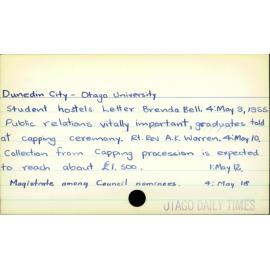 Dunedin City - Otago University
Student hostels. Letter Brenda Bell. 4: May 3, 1955
Public relations vitally important, graduates told
at capping ceremony. Rt. Rev A.K. Warren. 4: May 10,
Collection from Capping procession is expected
to reach about £1,500. 1: May 12,
Magistrate among Council nominees. 4: May 18
OTAGO DAILY TIMES